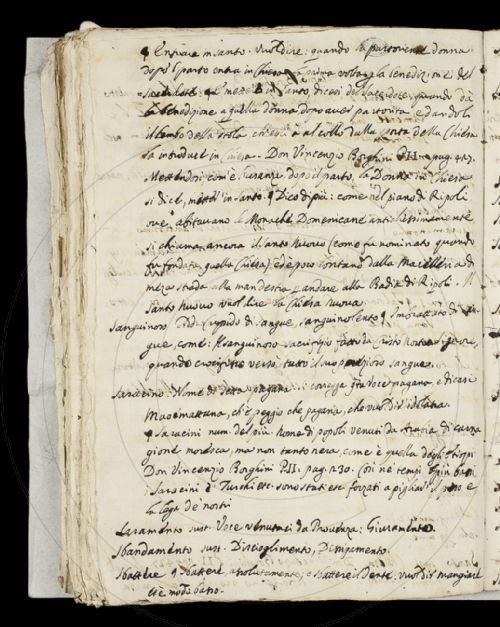 ¶ Entrare in santo. Vuol dire: quando la partoriente donna
dopo 'l parto entra in Chiesa la prima volta la benedizione del
Sacerdote: ¶ e mettere in Santo, dicesi del Sacerdote, quando dà
la benedizione a quella donna dopo aver partorito, e dandoli
il lembo della stola ch'egli à al collo dalla porta della Chiesa
la introduce in chiesa. Don Vincenzio Borghini P. II. pag. 417.
Mettendosi com'è usanza dopo il parto, la Donna in Chiesa
si dice, metter in santo. ¶ Dico di più: come nel piano di Ripoli
ove abitavano le Monache Domenicane antichissimamente
si chiama ancora il santo Nuovo (come fu nominato quando
fu fondata quella Chiesa) ed è poco lontano dalla Macelleria di
mezza strada alla man destra p andare alla Badia di Ripoli. Il
Santo Nuovo vuol dire la Chiesa nuova
Sanguinoso Add. di sangue, sanguinolento ¶ Imbrattato di san-
gue, come: Il sanguinoso sacrifizio fatto da Cristo nostro signore,
quando crocifisso versò tutto il suo prezioso sangue.
Saracino. Nome di setta pagana: si corregga gta voce pagana e dicasi
Maomettana, ch'è peggio che pagana, che vuol dir idolatra
¶ Saracini num. del più. Nome di popoli venuti da di carna
gione moresca, ma non tanto nera, come è quella degl'Etiopi
Don Vincenzio Borghini P. II. pag. 230. Così ne' tempi più bassi
i Saracini e Turchi etc. sono stati etc. forzati a pigliar il peso e
la lega de nostri
Saramento sust. Voce venutaci da Provenza: Giuramento
Sbandamento sust. Discioglimento, Disipamento.
Sbattere ¶ Sbattere, assolutamente, e sbattere il dente: vuol dir mangiare
ed è modo basso.